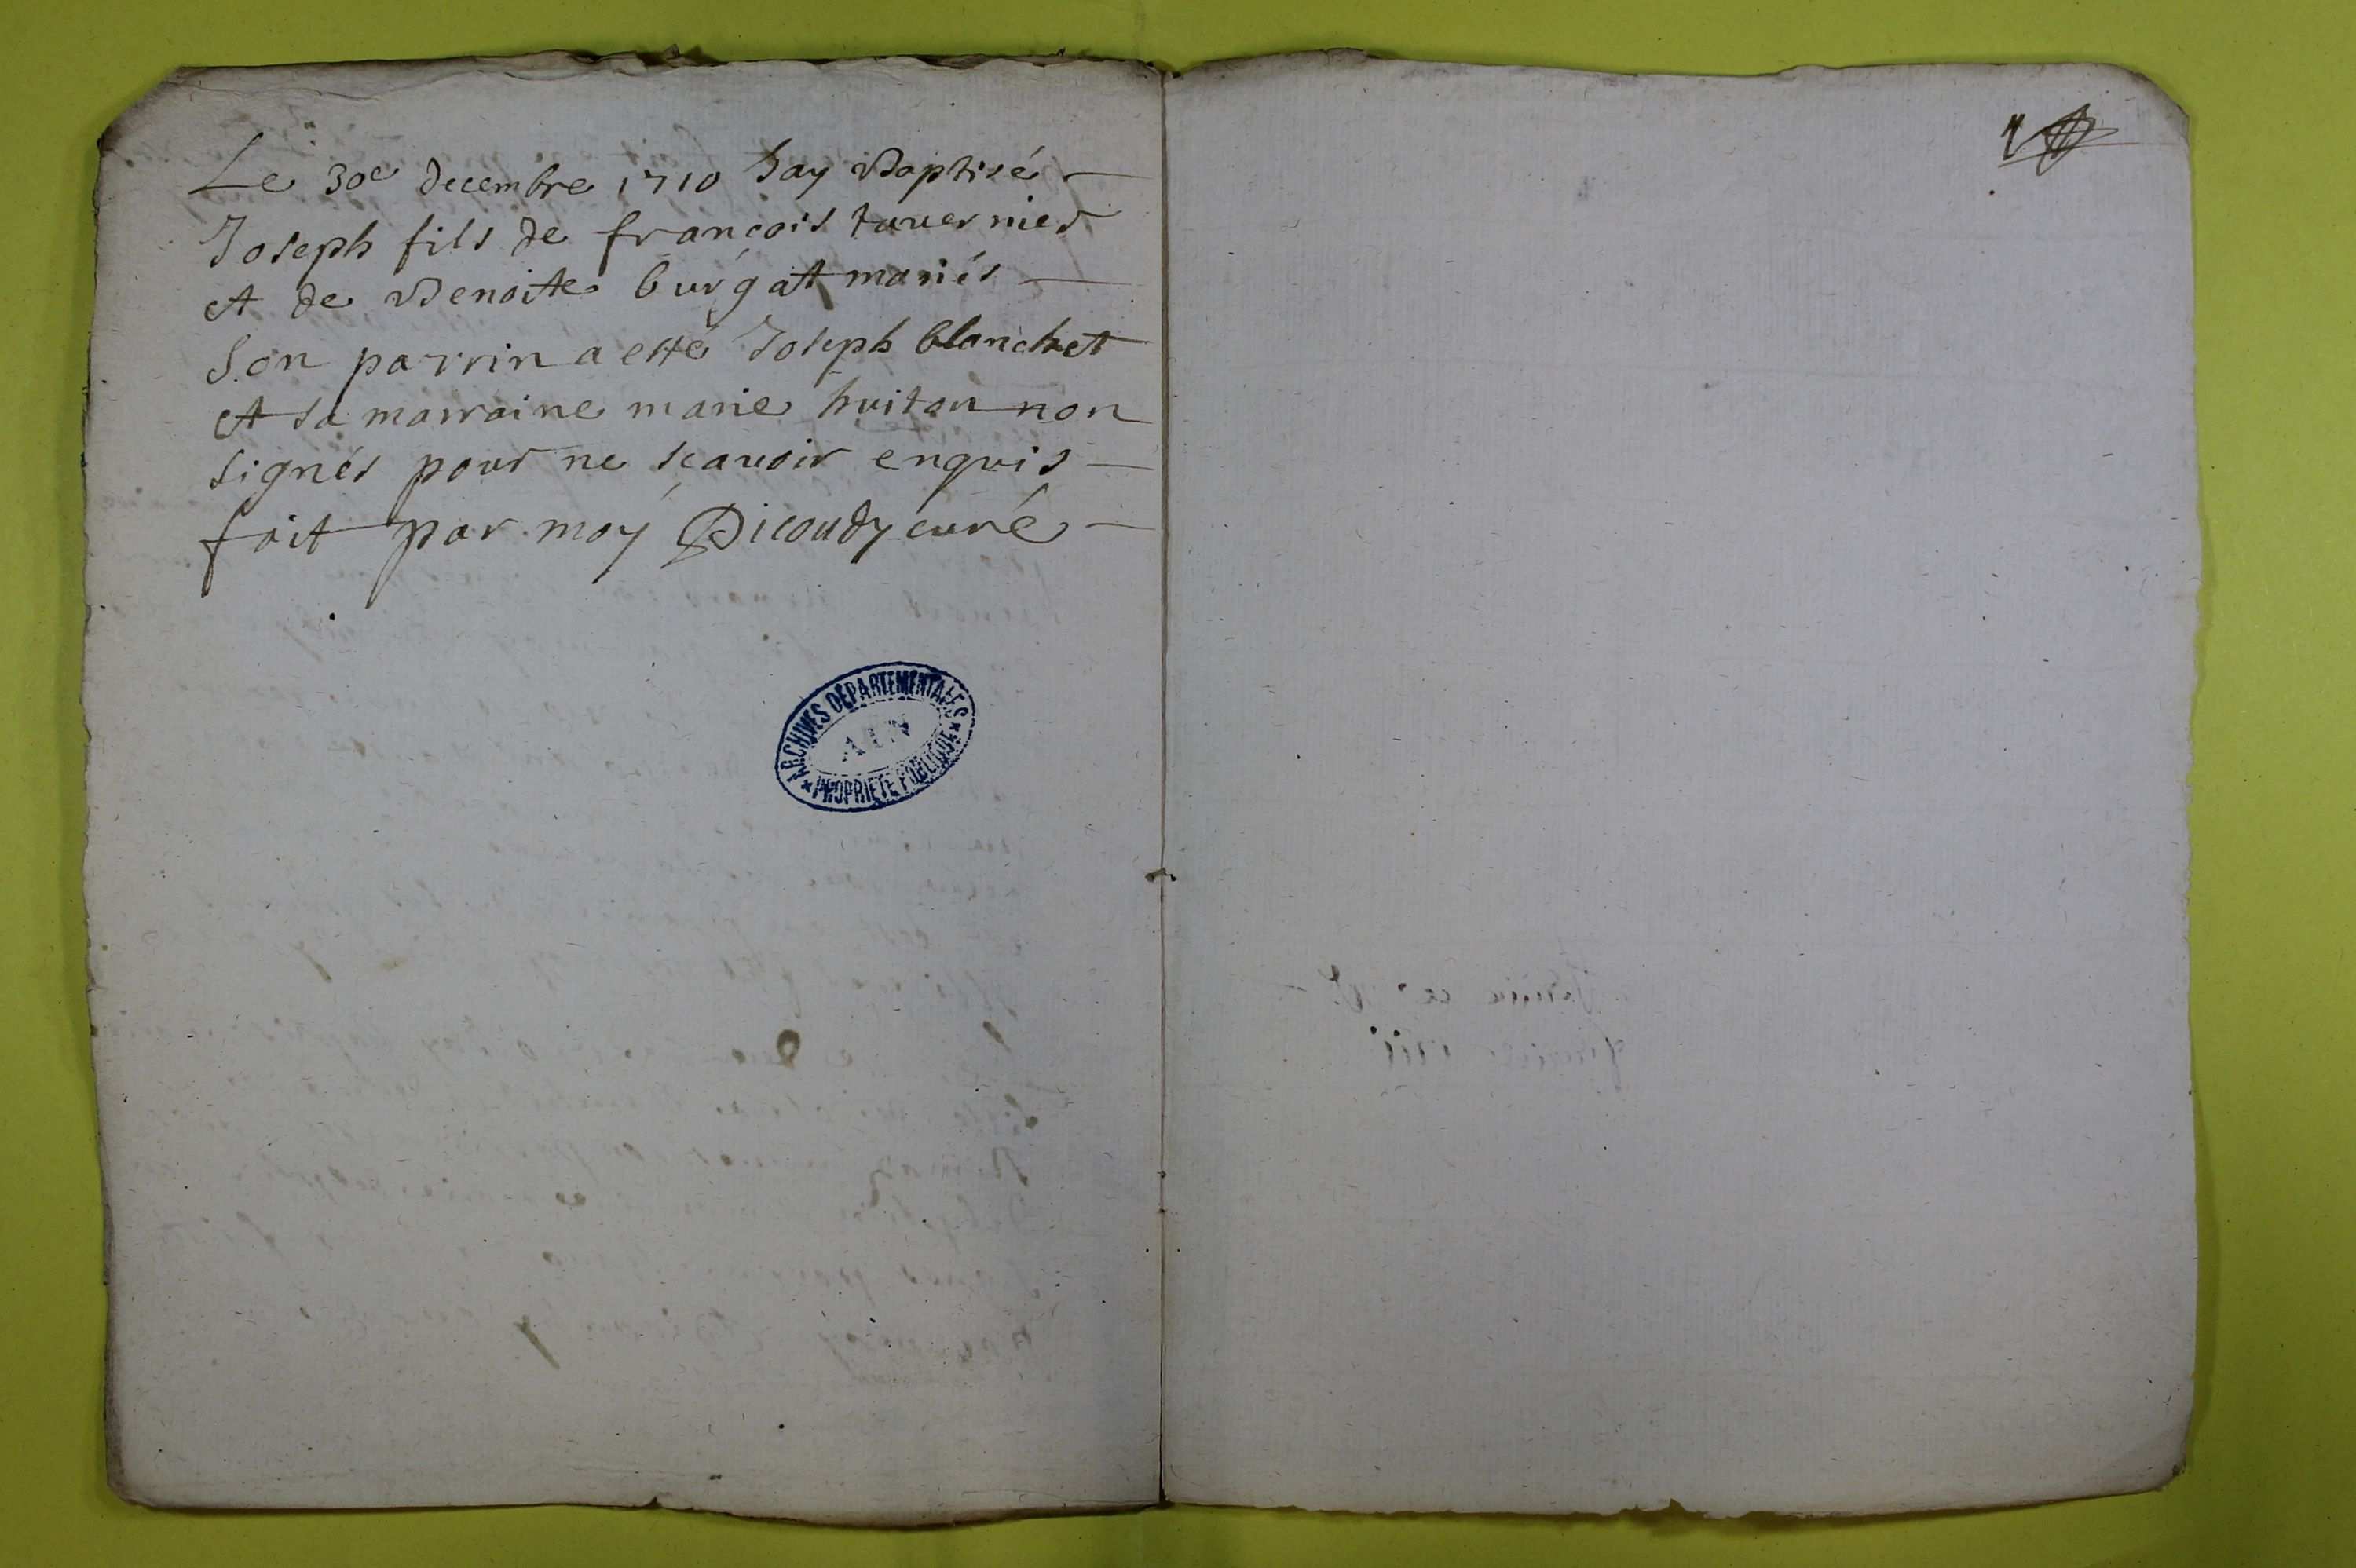 Le 30e decembre 1710 Jay Baptisé
Joseph fils de françois tavernier
et de Benoite burgat mariés
Son parrin a esté Joseph blanchet
et sa marraine marie huitou non
signés pour ne scavoir enquis
fait par moy Dicoudy curé
ARCHIVES DÉPARTEMENTALES
AIN
PROPRIÉTÉ PUBLIQUE